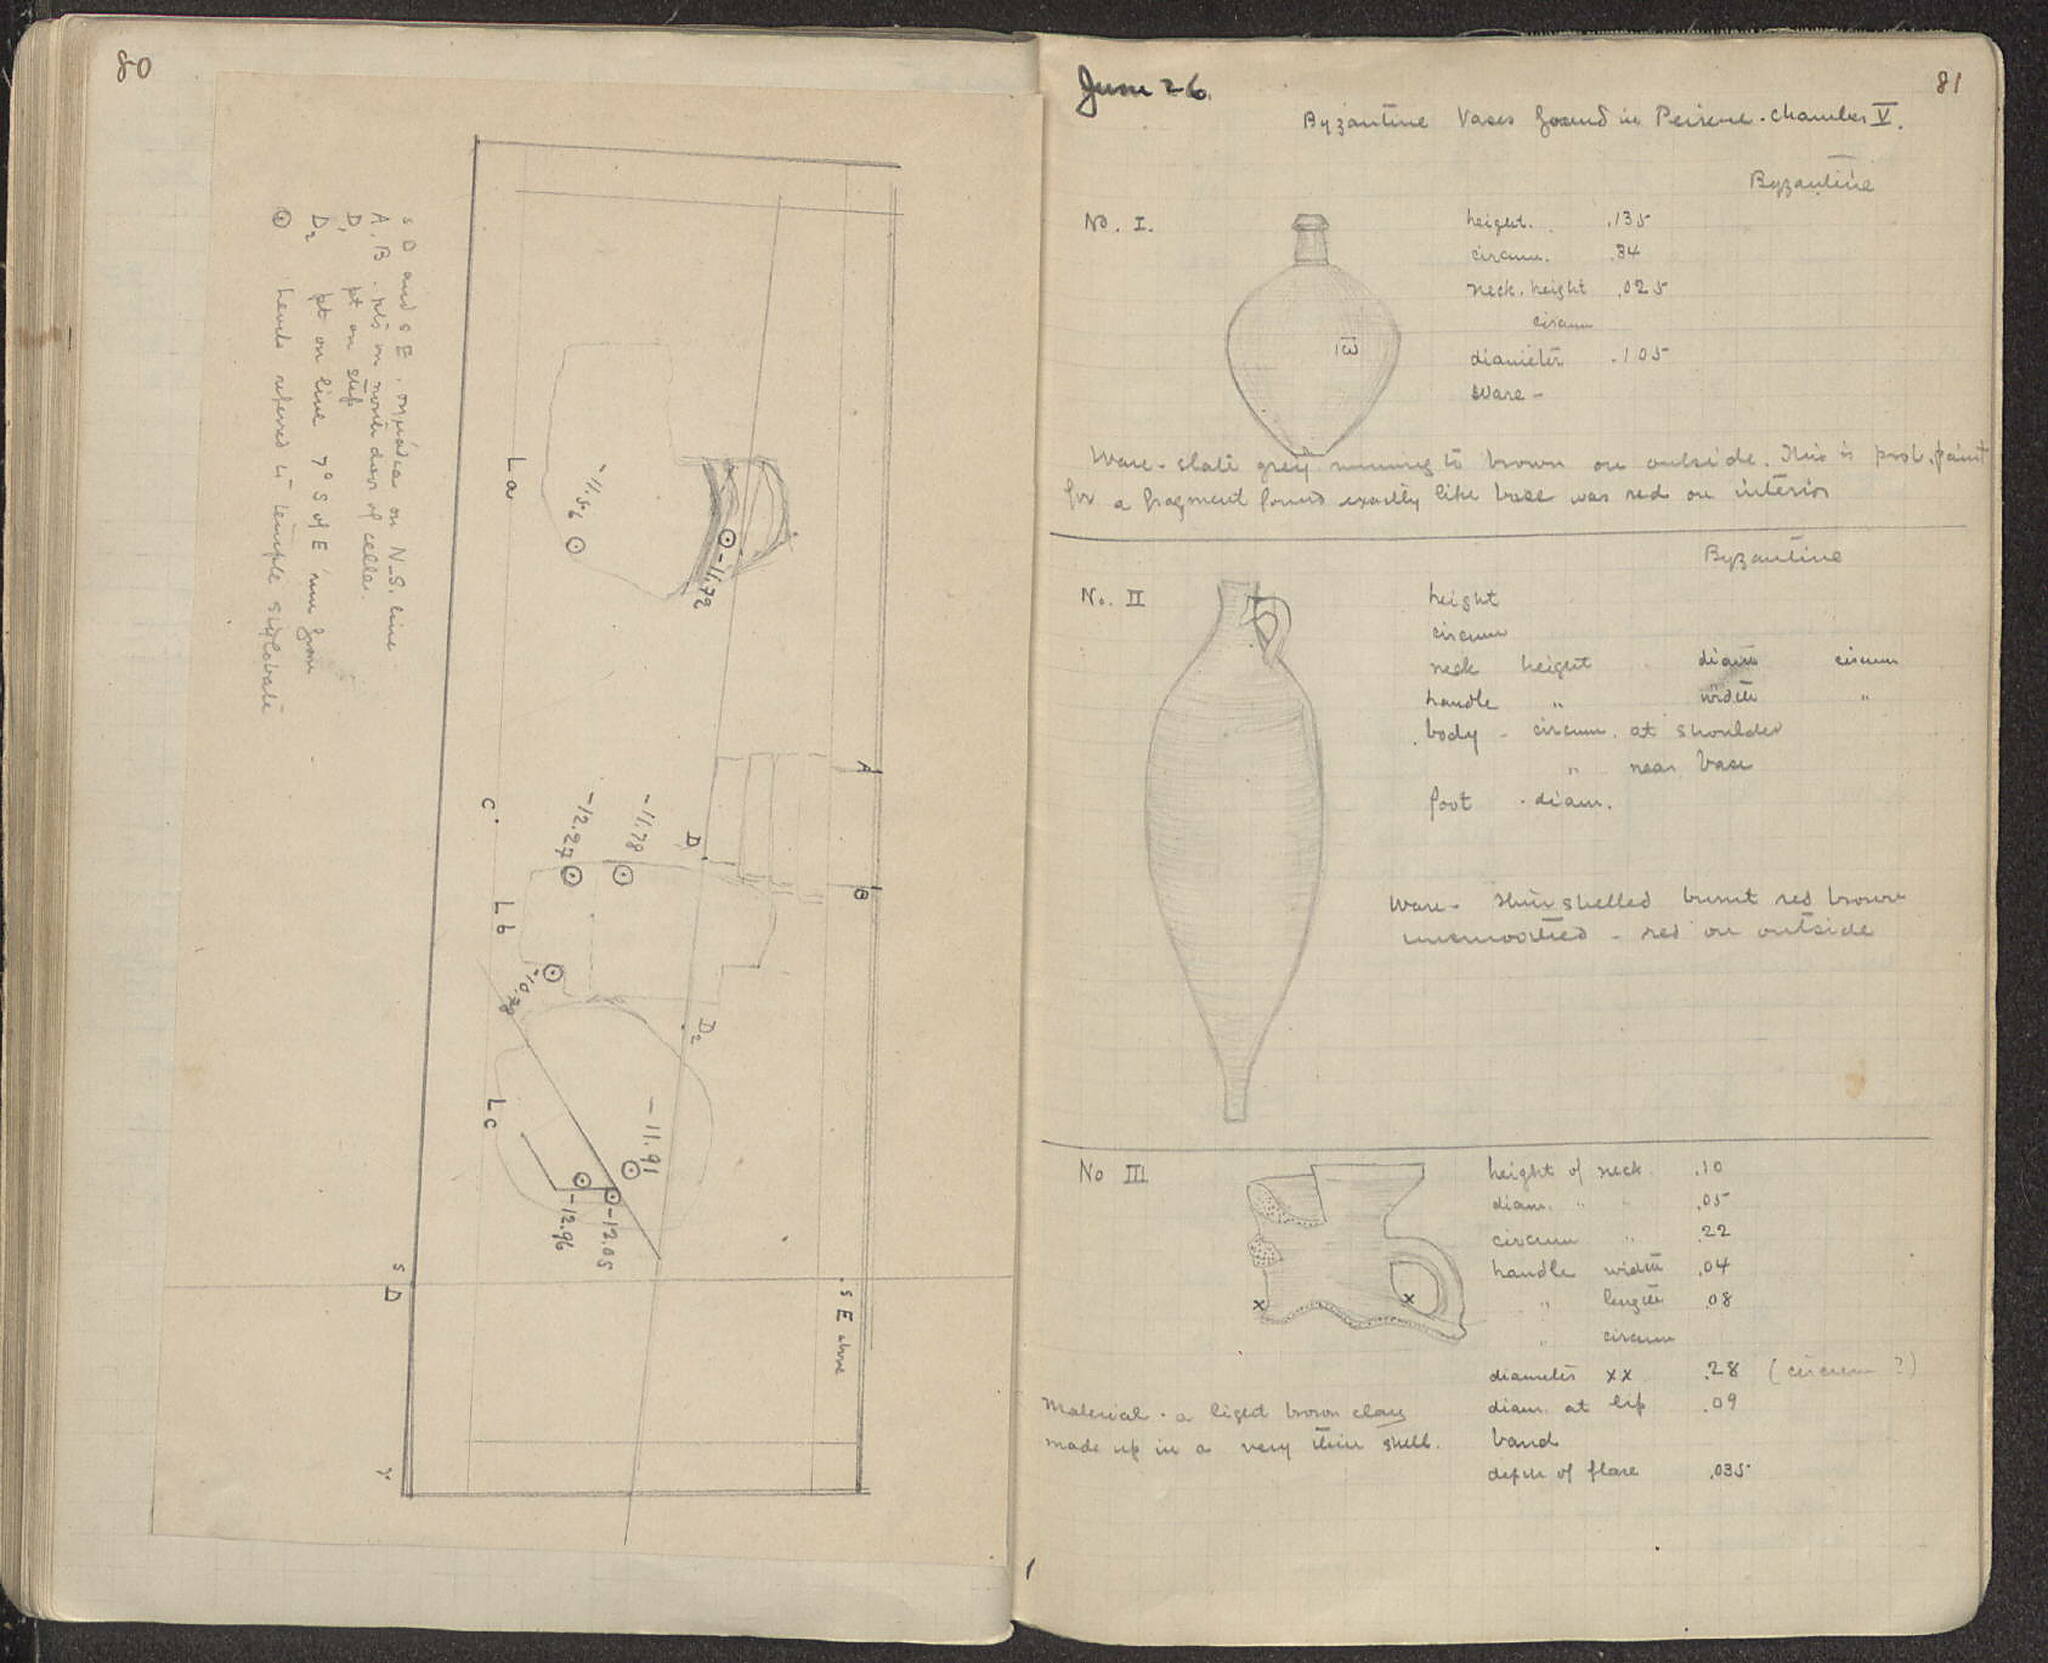 80
s D and s E. ομφάλια on N-S. line
A. B. pts on north door of cella.
D, pt on step
D2 pt on line 7° S of E mm from
⊙ levels referred to temple stylobate
La
-11.56
-11.72
A
C.
-12.27
-11.78
D
B
Lb
-10.78
D2
Lc
-11.91
-12.96
-12.05
s D
s E above
June 26.
81
Byzantine Vases found in Peirene - Chamber V.
Byzantine
No. I.
height. .135
circum. .34
neck. height .025
circum
diameter .105
ware -
Ware - slate grey running to brown on outside. This is prob. paint
for a fragment found exactly like base was red on interior
Byzantine
No. II
height
circum
neck height diam circum
handle " width "
body - circum. at shoulder
" near base
foot - diam.
Ware - thin shelled burnt red brown
unsmoothed - red on outside
No III
height of neck .10
diam. " " .05
circum " .22
handle width .04
" length .08
" circum
diameter xx .28 (circum?)
diam. at lip .09
band
depth of flare .035
Material - a light brown clay
made up in a very thin shell.
x x